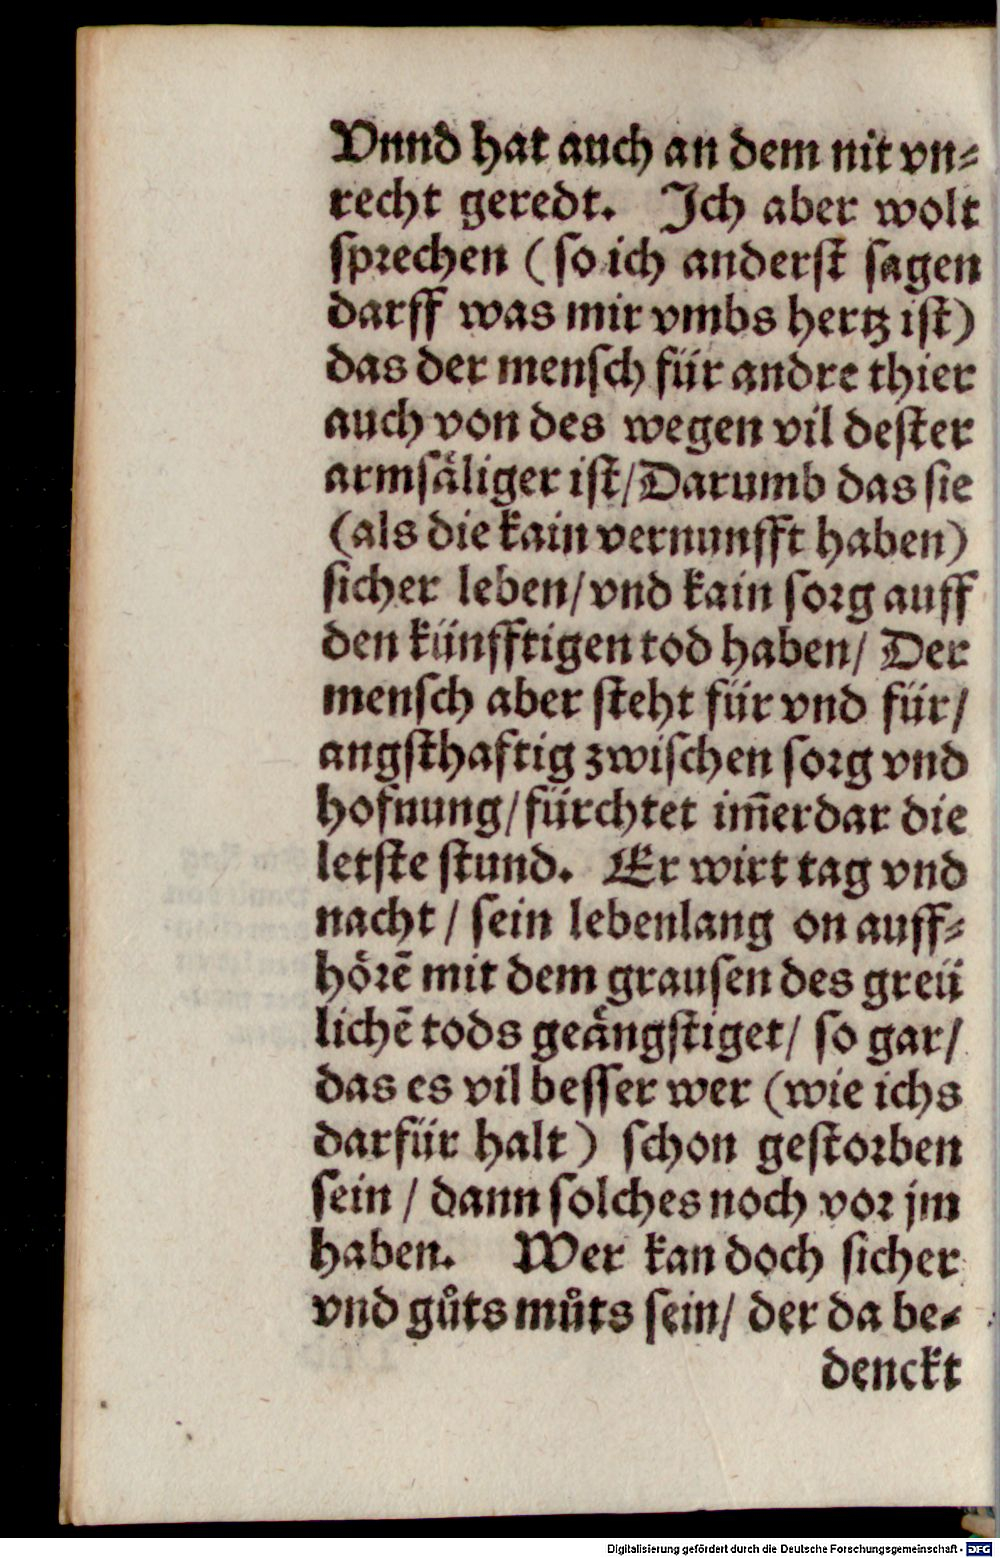 Vnnd hat auch an dem nit vn⸗
recht geredt. Ich aber wolt
sprechen (so ich anderst sagen
darff was mir vmbs hertz ist)
das der mensch für andre thier
auch von des wegen vil dester
armsäliger ist/Darumb das sie
(als die kain vernunfft haben)
sicher leben/vnd kain sorg auff
den künfftigen tod haben/ Der
mensch aber steht für vnd für/
angsthaftig zwischen sorg vnd
hofnung/fürchtet im̄erdar die
letste stund. Er wirt tag vnd
nacht / sein lebenlang on auff⸗
hörē mit dem grausen des greü
lichē tods geängstiget/ so gar/
das es vil besser wer (wie ichs
darfür halt) schon gestorben
sein / dann solches noch vor jm
haben. Wer kan doch sicher
vnd gůts můts sein/ der da be⸗
denckt
Digitalisierung gefördert durch die Deutsche Forschungsgemeinschaft - DFG